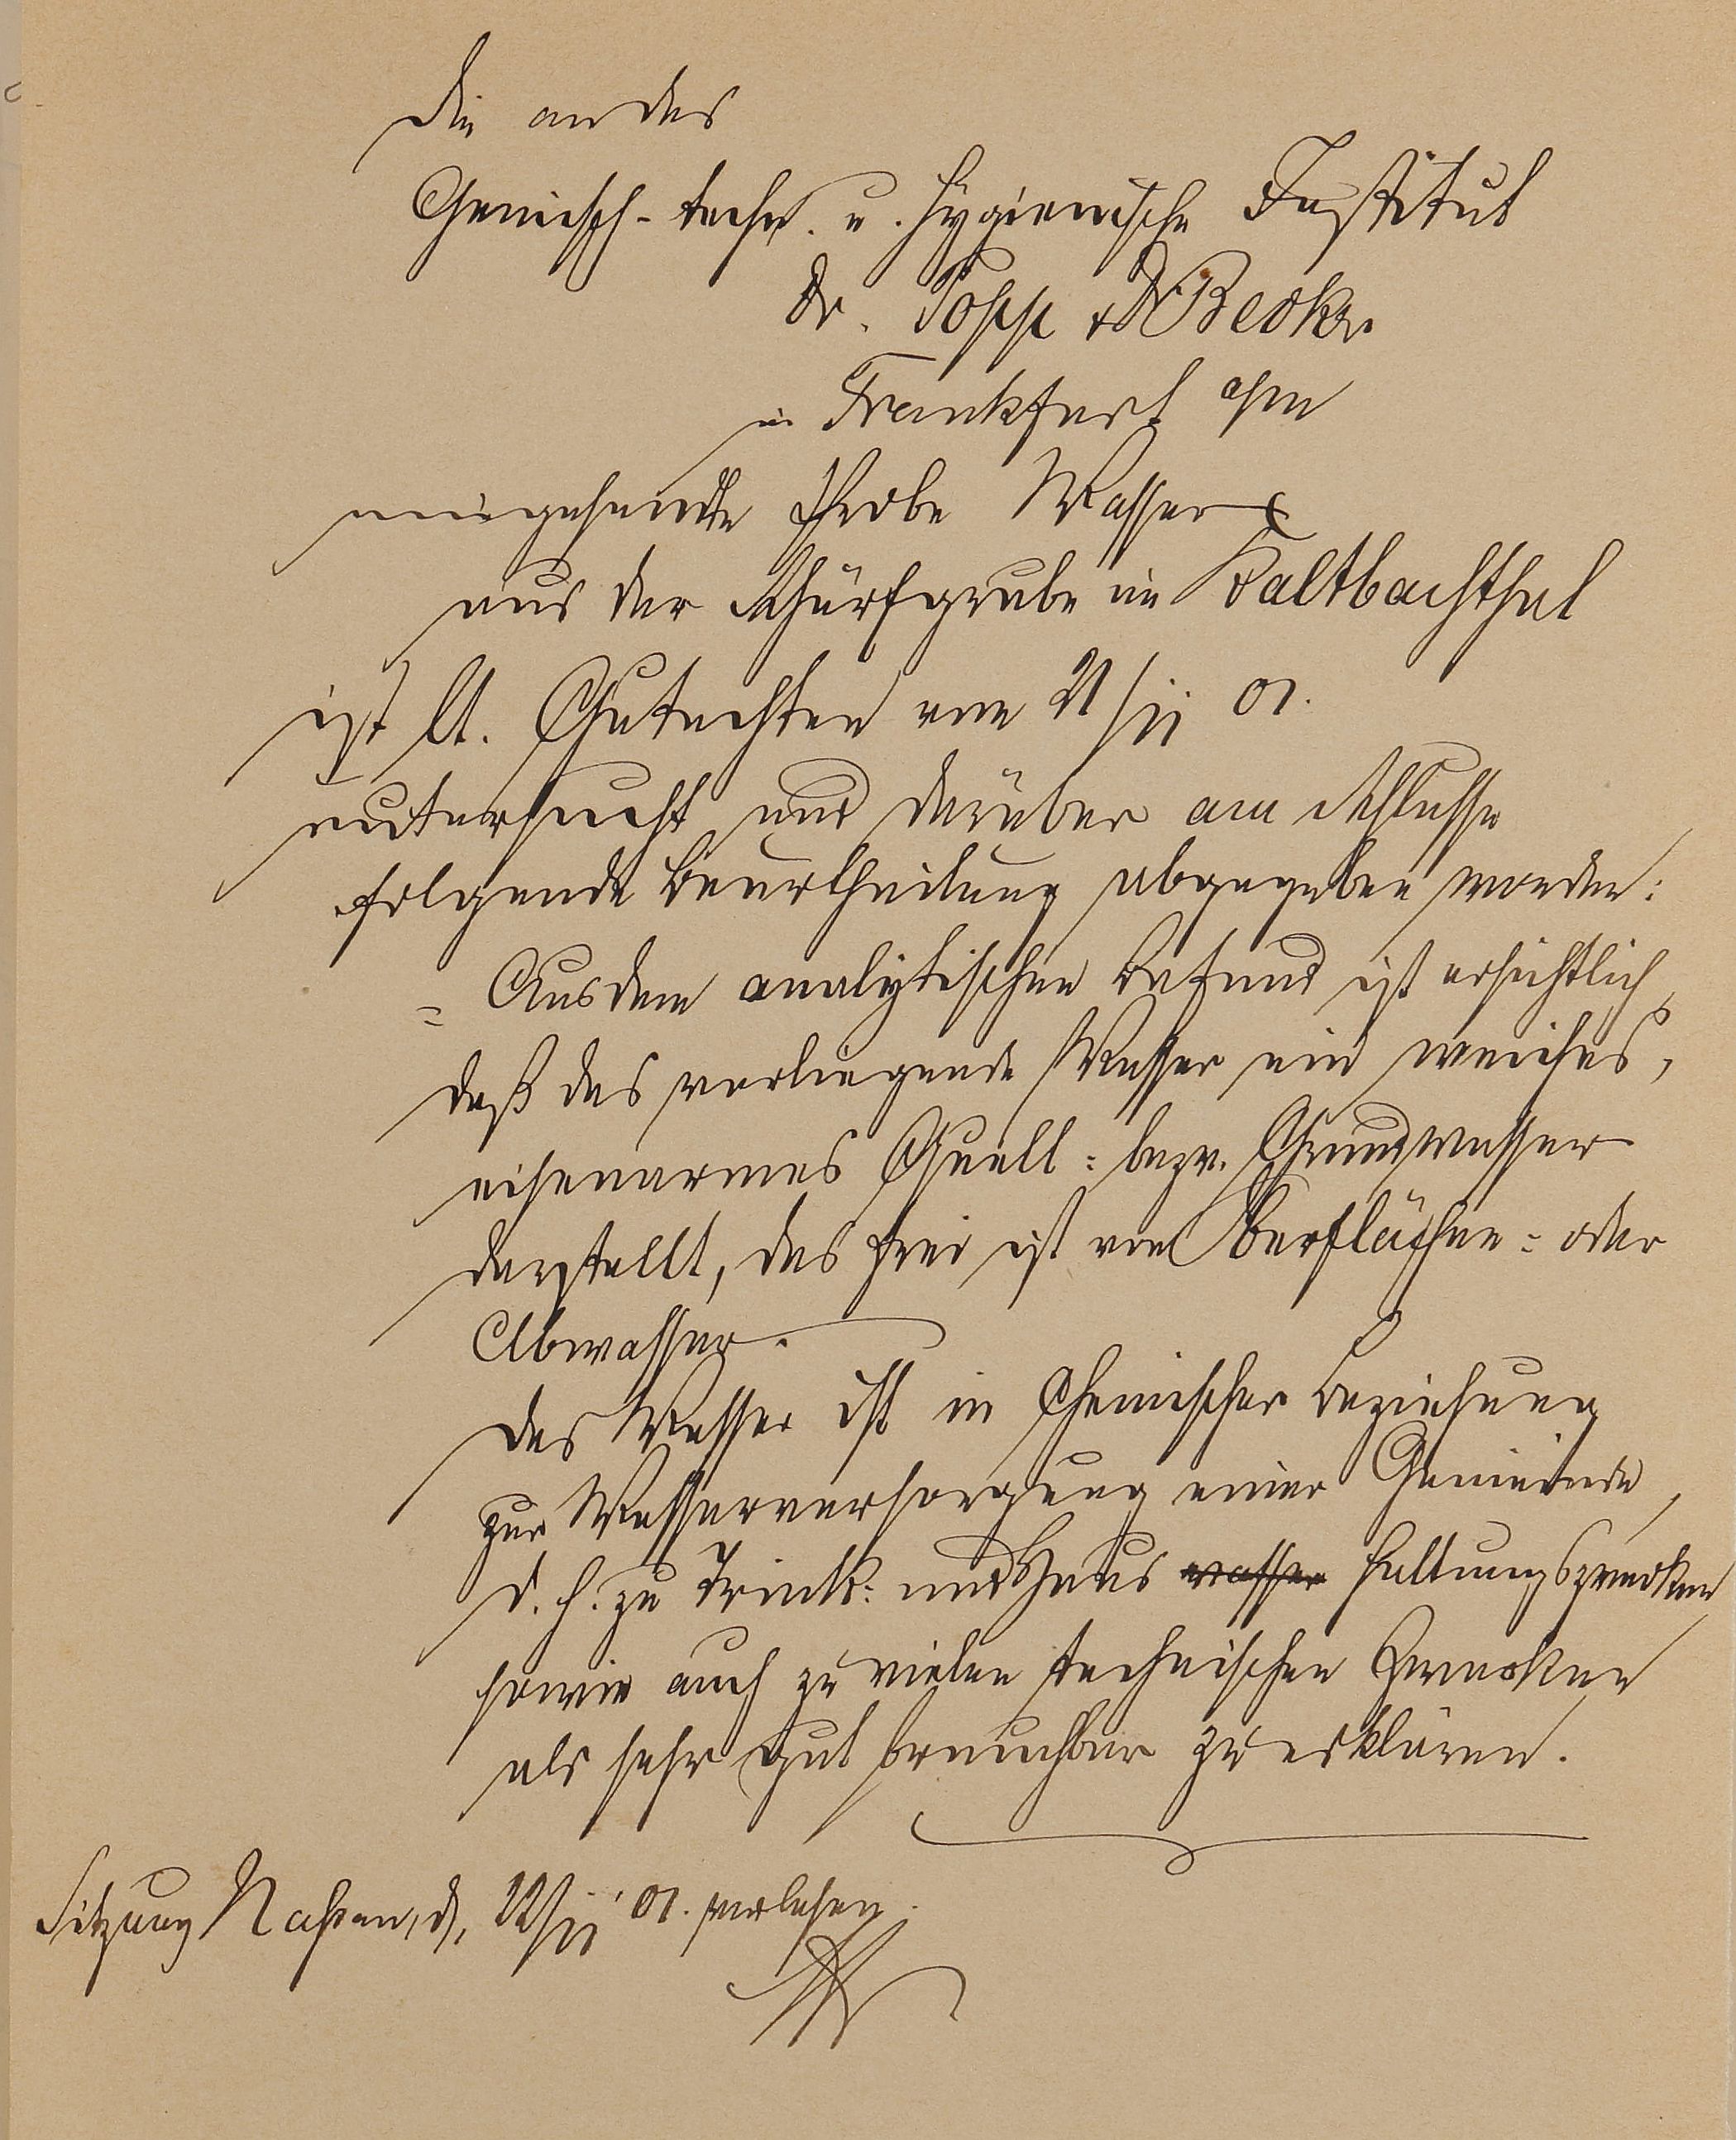 Die an das
Chemisch-techn. u. hygienische Institut
Dr. Popp & Dr Becker
in Frankfurt a/m
eingesandte Probe Wasser
aus der Schürfgrube im Kaltbachthal
ist lt. Gutachten vom 21/II 01.
untersucht und darüber am Schlusse
folgende Beurtheilung abgegeben worden:
= Aus dem analytischen Befund ist ersichtlich,
daß das vorliegende Wasser ein weiches,
eisenarmes Quell= bezw. Grundwasser
darstellt, das frei ist von Oberflächen= oder
Abwasser.
Das Wasser ist in chemischer Beziehung
zur Wasserversorgung einer Gemeinde,
d. h. zu Trink= und Haus wasser haltungszwecken
sowie auch zu vielen technischen Zwecken
als sehr gut brauchbar zu erklären.
Sitzung Nassau, d. 22/II 01. verlesen.